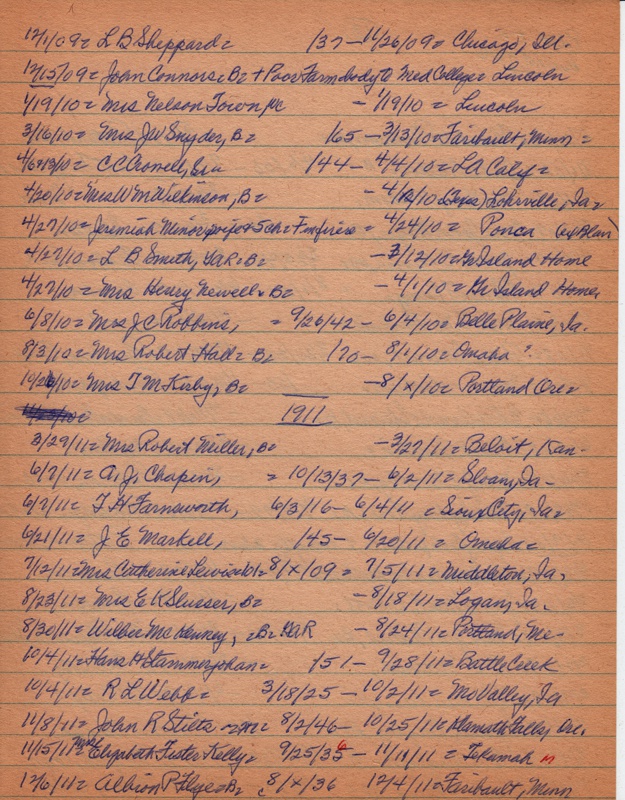 12/1/09 = L B Sheppard = /37 — 11/26/09 = Chicago, Ill.
12/15/09 = John Connors = B = + Poor Farm body to Med College = Lincoln
1/19/10 = Mrs Nelson Town, — 1/19/10 = Lincoln
3/16/10 = Mrs JW Snyder, B = /65 — 3/13/10 = Faribault, Minn =
C C Crowell, /44 — 4/4/10 = LA City =
4/20/10 = Mrs Wm Wilkinson, B = — Lohrville, Ia =
4/27/10 = Jeremiah Minor wife & 5 ch = = 4/24/10 = Ponca (ex Blair)
4/27/10 = L B Smith, GAR = B = — 3/12/10 = Gr Island Home
4/27/10 = Mrs Henry Newell = B = — 4/1/10 = Gr Island Home,
6/8/10 = Mrs J C Robbins, = 9/26/42 — 6/4/10 = Belle Plaine, Ia.
8/3/10 = Mrs Robert Hall = B = /70 — 8/1/10 = Omaha
= Mrs T M Kirby, B = — 8/x/10 = Portland Ore =
1911
3/29/11 = Mrs Robert Miller, B = — 3/27/11 = Beloit, Kan.
6/7/11 = A. J. Chapin, = 10/13/37 — 6/2/11 = Sloan, Ia —
6/7/11 = T H Farnsworth, 6/3/16 — 6/4/11 = Sioux City, Ia =
6/21/11 = J E Markell, /45 — 6/20/11 = Omaha =
7/12/11 = Mrs Catherine Lewis 8/x/09 = 7/5/11 = Middleton, Ia,
8/23/11 = Mrs E K Slusser, B = — 8/18/11 = Logan, Ia.
8/30/11 = Wilber McKenney, = B = GAR — 8/24/11 = Portland, Me —
10/4/11 = Hans H Stammerjohan = /51 — 9/28/11 = Battle Creek
10/4/11 = R L Webb = 3/18/25 — 10/2/11 = Mo Valley, Ia
11/8/11 = John R Stilts 8/2/46 — 10/25/11 = Klamath Falls, Ore.
11/15/11 = Elizabeth Fuster Kelly = 9/25/35 6 — 11/11/11 = Tekamah n
12/6/11 = Albion P Flye = B = 8/x/36 12/4/11 = Faribault, Minn